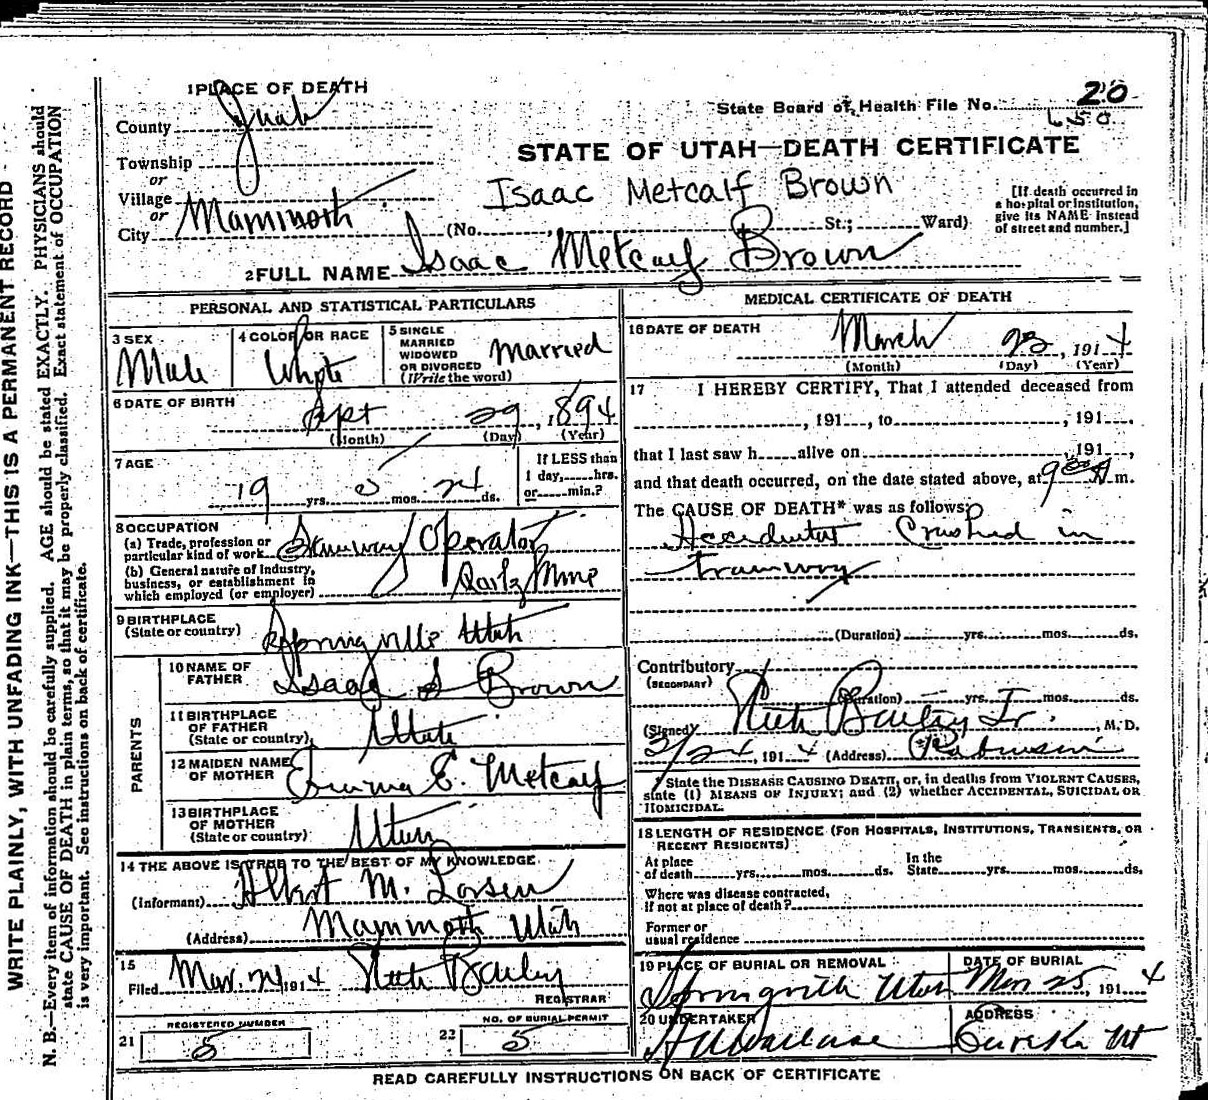 1 PLACE OF DEATH
County Juab
State Board of Health File No. 20
Township
or
Village
or
City Mammoth
STATE OF UTAH—DEATH CERTIFICATE
Isaac Metcalf Brown
(No. St.; Ward)
[If death occurred in
a hospital or institution,
give its NAME instead
of street and number.]
2 FULL NAME Isaac Metcalf Brown
PERSONAL AND STATISTICAL PARTICULARS
3 SEX
Male
4 COLOR OR RACE
White
5 SINGLE
MARRIED
WIDOWED
OR DIVORCED
(Write the word)
Married
6 DATE OF BIRTH
Sept 29, 1894
(Month) (Day) (Year)
7 AGE
19 yrs. 5 mos. 24 ds.
If LESS than
1 day, hrs.
or min.?
8 OCCUPATION
(a) Trade, profession or
particular kind of work Tramway Operator
(b) General nature of industry,
business, or establishment in
which employed (or employer) Qartz Mine
9 BIRTHPLACE
(State or country) Springville Utah
PARENTS
10 NAME OF
FATHER Isaac S Brown
11 BIRTHPLACE
OF FATHER
(State or country) Utah
12 MAIDEN NAME
OF MOTHER Emma E. Metcalf
13 BIRTHPLACE
OF MOTHER
(State or country) Utah
14 THE ABOVE IS TRUE TO THE BEST OF MY KNOWLEDGE
(Informant) Albert M. Larsen
(Address) Mammoth Utah
15
Filed Mar. 24 1914 Bailey
REGISTRAR
REGISTERED NUMBER
21 5
NO. OF BURIAL PERMIT
22 5
MEDICAL CERTIFICATE OF DEATH
16 DATE OF DEATH
March 23, 1914
(Month) (Day) (Year)
17 I HEREBY CERTIFY, That I attended deceased from
, 191 , to , 191 ,
that I last saw h alive on , 191 ,
and that death occurred, on the date stated above, at 9 00 A m.
The CAUSE OF DEATH* was as follows:
Accidental Crushed in
tramway
(Duration) yrs. mos. ds.
Contributory
(SECONDARY)
(Duration) yrs. mos. ds.
(Signed) Bailey Jr. M. D.
3/24, 1914 (Address) Robinson
* State the DISEASE CAUSING DEATH, or, in deaths from VIOLENT CAUSES,
state (1) MEANS OF INJURY; and (2) whether ACCIDENTAL, SUICIDAL OR
HOMICIDAL.
18 LENGTH OF RESIDENCE (FOR HOSPITALS, INSTITUTIONS, TRANSIENTS, OR
RECENT RESIDENTS)
At place
of death yrs. mos. ds.
In the
State yrs. mos. ds.
Where was disease contracted,
if not at place of death?
Former or
usual residence
19 PLACE OF BURIAL OR REMOVAL
Springville Utah
DATE OF BURIAL
Mar 25, 1914
20 UNDERTAKER
ADDRESS
Eureka Ut
READ CAREFULLY INSTRUCTIONS ON BACK OF CERTIFICATE
WRITE PLAINLY, WITH UNFADING INK—THIS IS A PERMANENT RECORD
N. B.—Every item of information should be carefully supplied. AGE should be stated EXACTLY. PHYSICIANS should
state CAUSE OF DEATH in plain terms, so that it may be properly classified. Exact statement of OCCUPATION
is very important. See instructions on back of certificate.